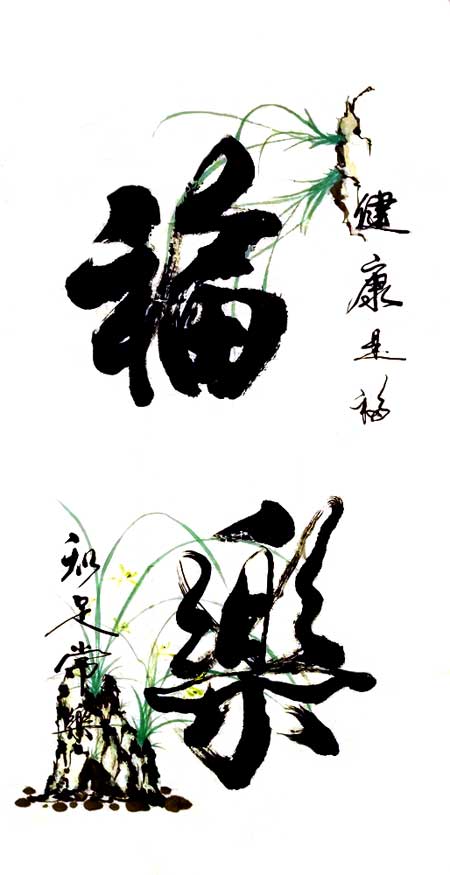 福
健康是福
樂
知足常樂